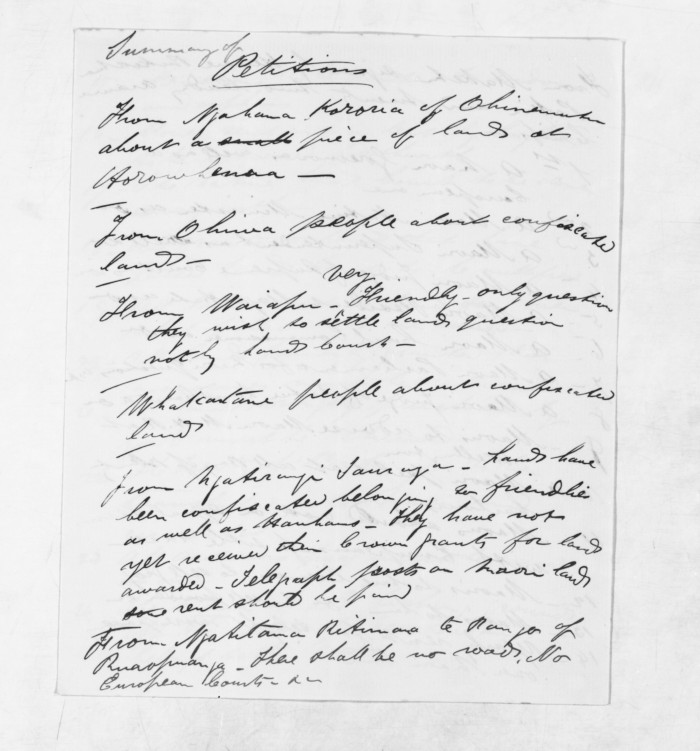 Summary of
Petitions
From Ngahana Kororia of Ohinemutu
about a small piece of lands at
Horowhenua —
From Ohiwa people about confiscated
lands —
very
From Waiapu — Friendly — only question
they wish to settle lands question
not by Lands Court —
Whakatane people about confiscated
land
From Ngatirangi Tauranga — Lands have
been confiscated belonging to friendlies
as well as Hauhaus — They have not
yet received their Crown grants for lands
awarded — Telegraph posts on Maori lands
rent should be paid
From Ngatitama Ritimana te Rango of
— there shall be no roads. No
European Courts — &c